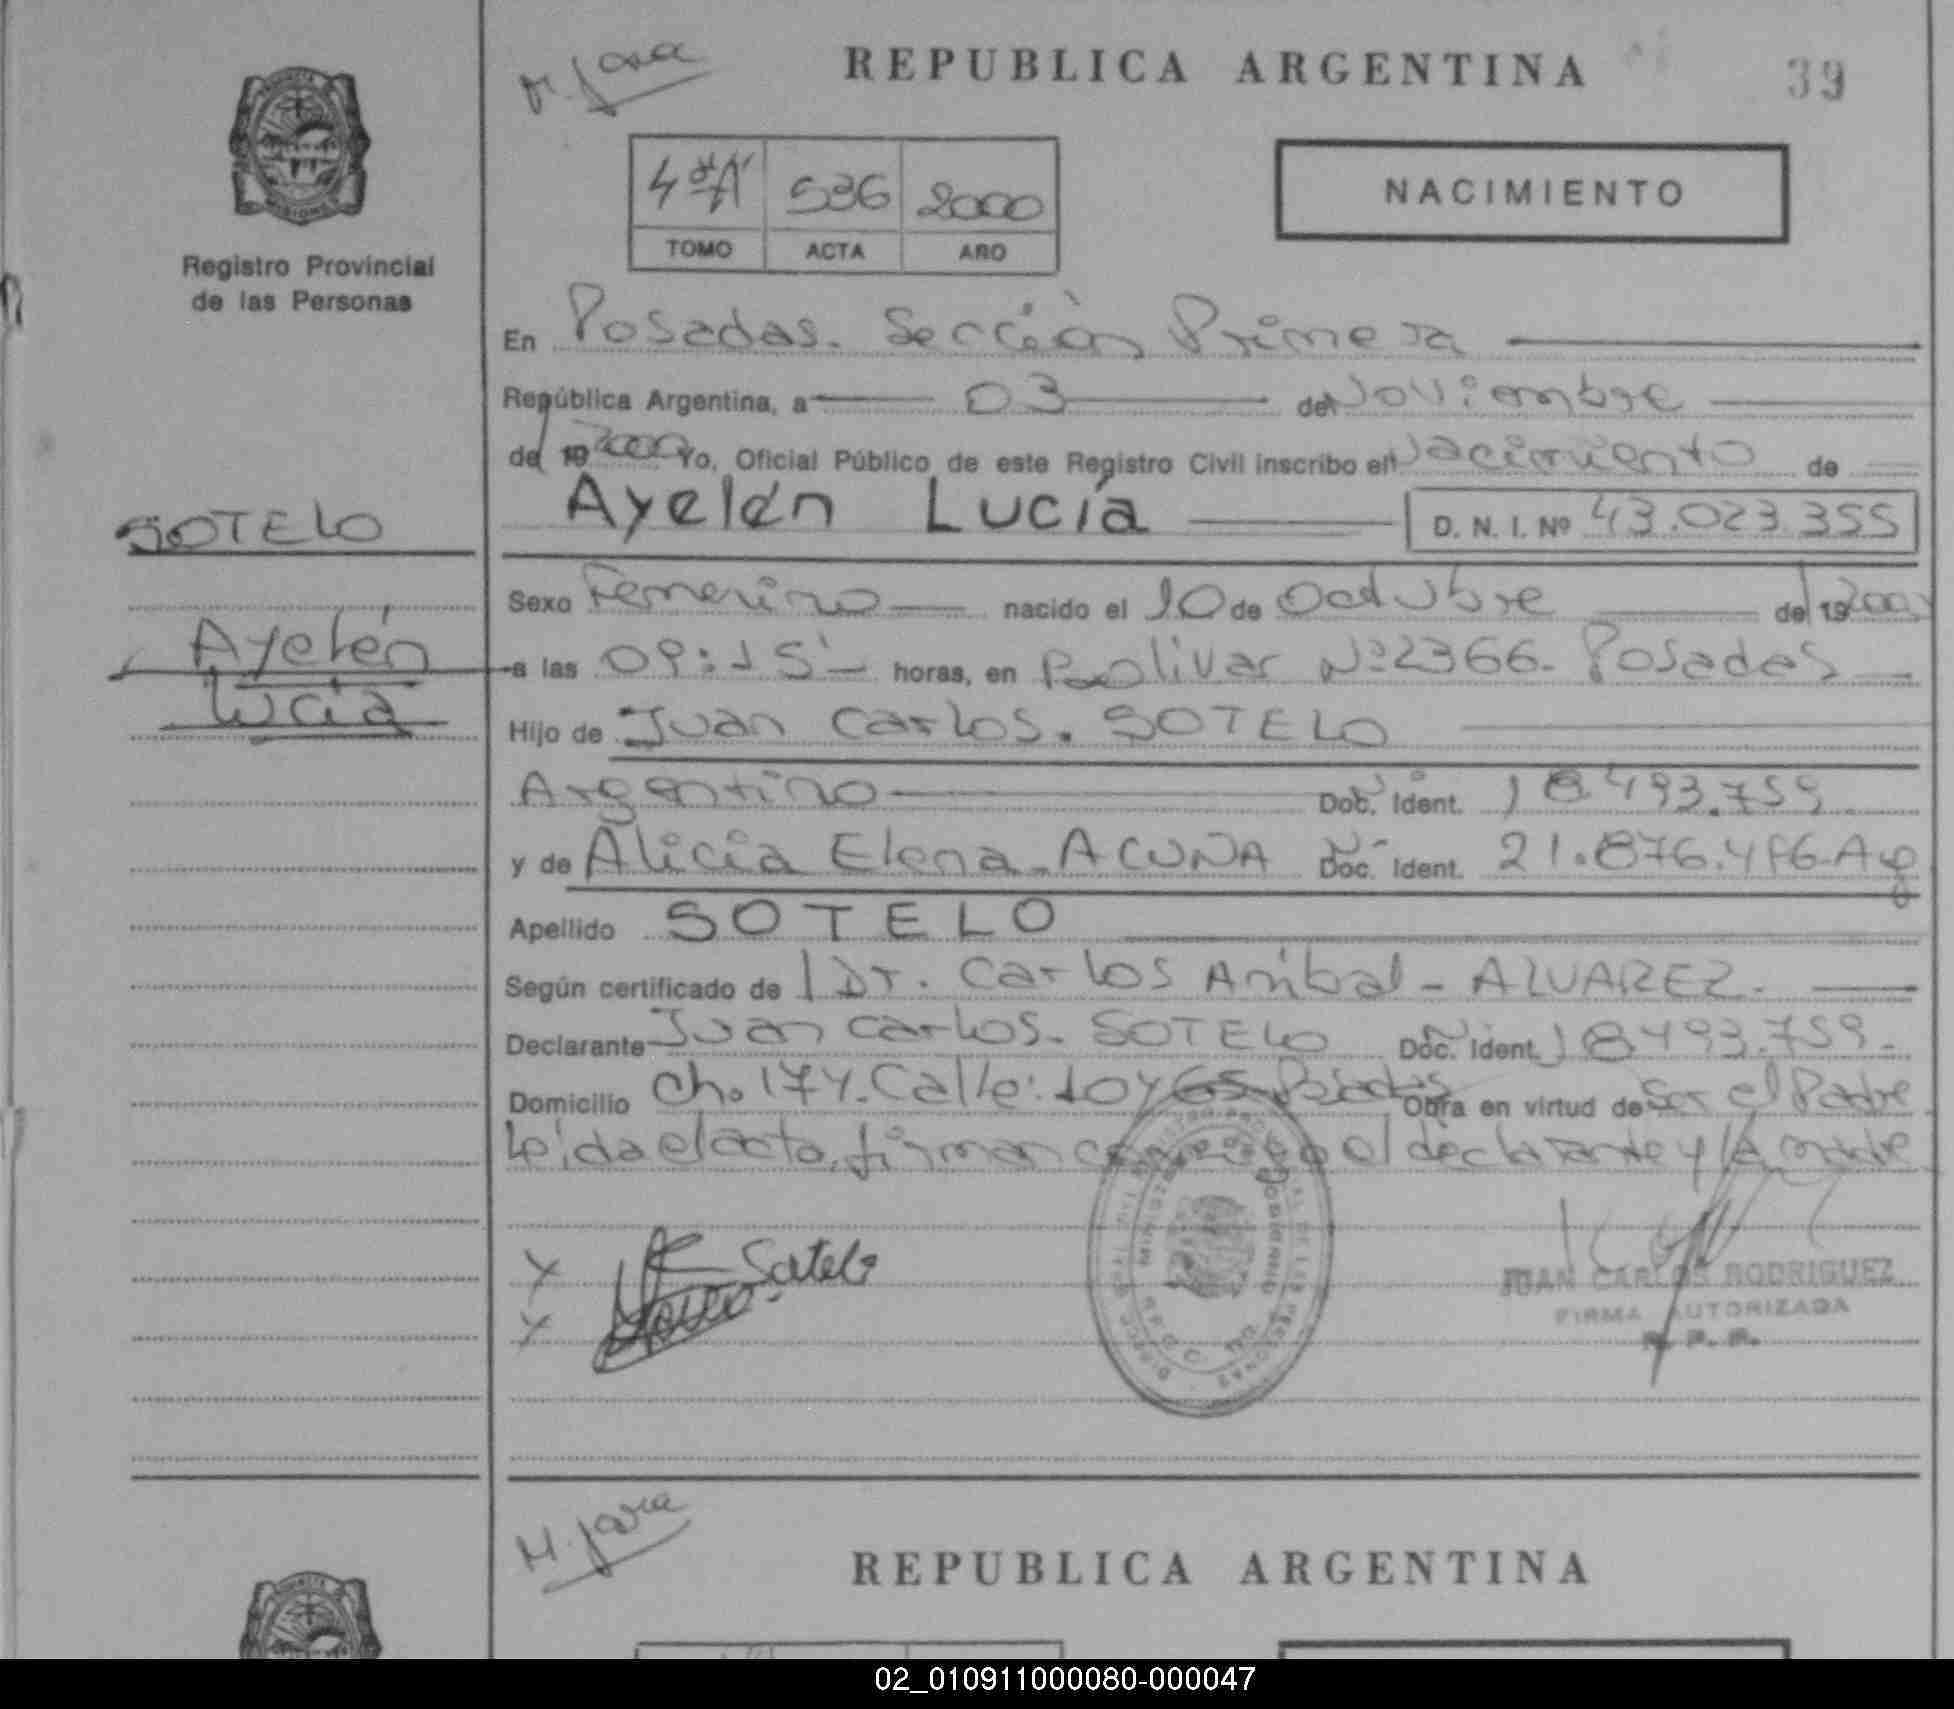 M. Jara
REPUBLICA ARGENTINA
39
4º"A" 536 2000
TOMO ACTA AÑO
NACIMIENTO
Registro Provincial
de las Personas
En Posadas. Sección Primera
República Argentina, a 03 de Noviembre
de 19 2000 Yo, Oficial Público de este Registro Civil inscribo el Nacimiento de
Ayelén Lucía D. N. I. Nº 43.023.355
SOTELO
Ayelén
Lucía
Sexo Femenino nacido el 10 de Octubre de 19 2000
a las 09:15' horas, en Bolivar Nº 2366. Posadas
Hijo de Juan Carlos. SOTELO
Argentino Doc. Ident. 18.493.759
y de Alicia Elena. ACUÑA Doc. Ident. 21.876. Arg
Apellido SOTELO
Según certificado de Dr. Carlos Anibal - ALVAREZ.
Declarante Juan Carlos. SOTELO Doc. Ident. 18.493.759.
Domicilio Ch. 174. Calle: 10 y 65 Posadas Obra en virtud de Ser el Padre
Leida el acta, firman conmigo el declarante y la madre
Sotelo
JUAN CARLOS RODRIGUEZ
FIRMA AUTORIZADA
R. P. P.
M. Jara
REPUBLICA ARGENTINA
02_010911000080-000047